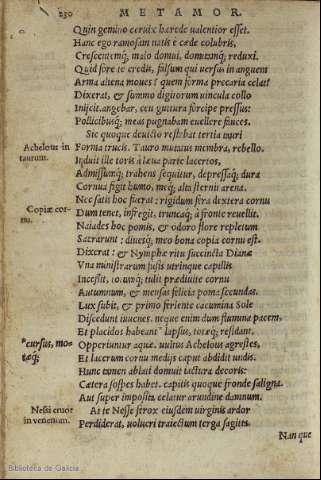 230 METAMOR.
Quin gemino ceruix hærede ualentior esset.
Hanc ego ramosam natis è cæde colubris,
Crescentemq́; malo domui, domitamq́; reduxi.
Quid fore te credis, falsum qui uersus in anguem
Arma aliena moues? quem forma precaria celat?
Dixerat, & summo digitorum uincula collo
Inijcit. angebar, ceu guttura forcipe pressus:
Pollicibusq́; meas pugnabam euellere fauces.
Sic quoque deuicto restabat tertia tauri
Achelous in taurum.
Forma trucis. Tauro mutatus membra, rebello.
Induit ille toris à læua parte lacertos,
Admissumq́; trahens sequitur, depressaq́; dura
Cornua figit humo, meq́; alta sternit arena.
Nec satis hoc fuerat: rigidum fera dextera cornu
Copiæ cornu.
Dum tenet, infregit, truncaq́; à fronte reuellit.
Naiades hoc pomis, & odoro flore repletum
Sacrarunt: diuesq́; meo bona copia cornu est.
Dixerat: & Nymphe ritu succincta Dianæ
Vna ministrarum fusis utrinque capillis
Incessit, totumq́; tulit prædiuite cornu
Autumnum, & mensas felicia poma secundas.
Lux subit, & primo feriente cacumina Sole
Discedunt iuuenes. neque enim dum flumina pacem,
Et placidos habeant lapsus, totæq́; residant,
*cursus, motæq́;
Opperiuntur aquæ. uultus Achelous agrestes,
Et lacerum cornu medijs caput abdidit undis.
Hunc tamen ablati domuit iactura decoris:
Cætera sospes habet. capitis quoque fronde saligna.
Aut super imposita celatur arundine damnum.
Nessi cruor in venenum.
At te Nesse ferox eiusdem uirginis ardor
Perdiderat, uolucri traiectum terga sagitta.
Nan que
Biblioteca de Galicia